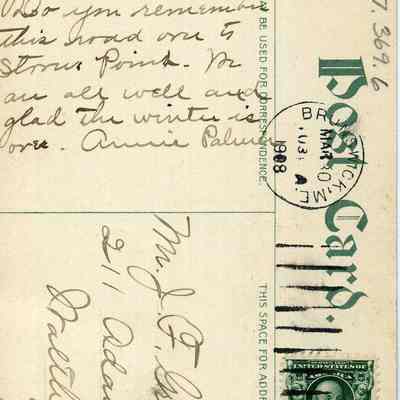 Do you remember
this road over to
Storer Point. We
are all well and
glad the winter is
over. Annie Palmer
BE USED FOR CORRESPONDENCE.
7.369.6
Post Card.
BRUNSWICK, ME.
MAR 30
A
1908
Mr. J. F.
211
THIS SPACE FOR ADDR
UNITED STATES OF AMERICA